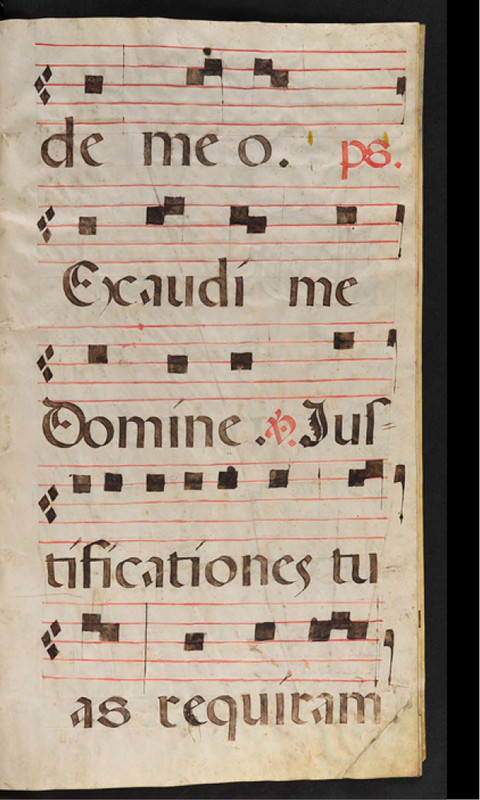 de me o. ps.
Exaudi me
Domine. ℟. Jus
tificationes tu
as requiram